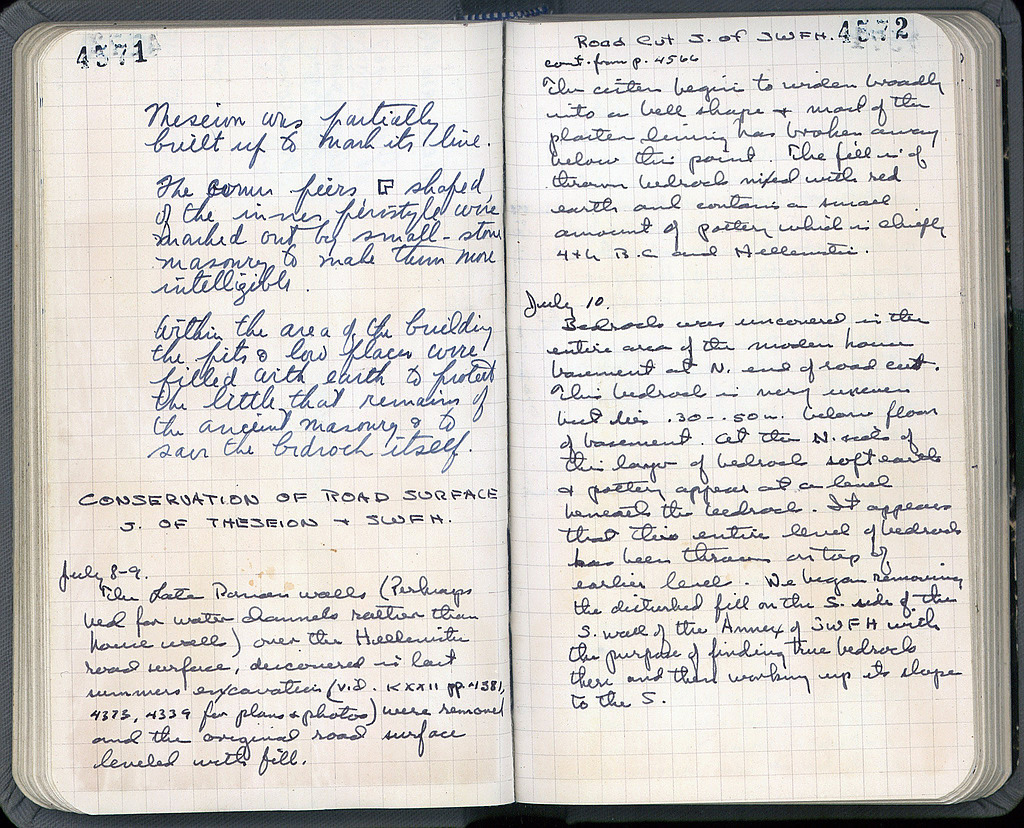 4571
Theseion was partially
built up to mark its line.
The corner piers shaped
of the inner peristyle were
marked out by small-stone
masonry to make them more
intelligible.
Within the area of the building
the pits & low places were
filled with earth to protect
the little that remains of
the ancient masonry & to
save the bedrock itself.
CONSERVATION OF ROAD SURFACE
S. OF THESEION + SWFH.
July 8-9.
The Late Roman walls (Perhaps
used for water channels rather than
house walls) over the Hellenistic
road surface, discovered in last
summers excavation (vid. KXXII pp. 4381,
4373, 4339 for plans & photos) were removed
and the original road surface
leveled with fill.
4572
Road Cut S. of SWFH.
cont. from p. 4566
The cistern begins to widen broadly
into a bell shape + most of the
plaster lining has broken away
below this point. The fill is of
thrown bedrock mixed with red
earth and contains a small
amount of pottery which is chiefly
4th B.C. and Hellenistic.
July 10.
Bedrock was uncovered in the
entire area of the modern house
basement at N. end of road cut.
This bedrock is very uneven
but lies .30-.50 m. below floor
of basement. At the N. side of
this layer of bedrock soft earth
+ pottery appear at a level
beneath the bedrock. It appears
that this entire level of bedrock
has been thrown on top of
earlier level. We began removing
the disturbed fill on the S. side of the
S. wall of the Annex of SWFH with
the purpose of finding true bedrock
there and then working up its slope
to the S.